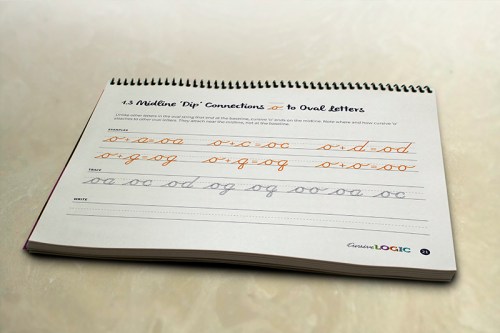 1.3 Midline 'Dip' Connections o to Oval Letters
Unlike other letters in the oval string that end at the baseline, cursive 'o' ends on the midline. Note where and how cursive 'o'
attaches to other oval letters. They attach near the midline, not at the baseline.
EXAMPLES
o + a = oa o + c = oc o + d = od
o + g = og o + q = oq o + o = oo
TRACE
oa oc od og oq oo oa oc
WRITE
Cursive LOGIC 21